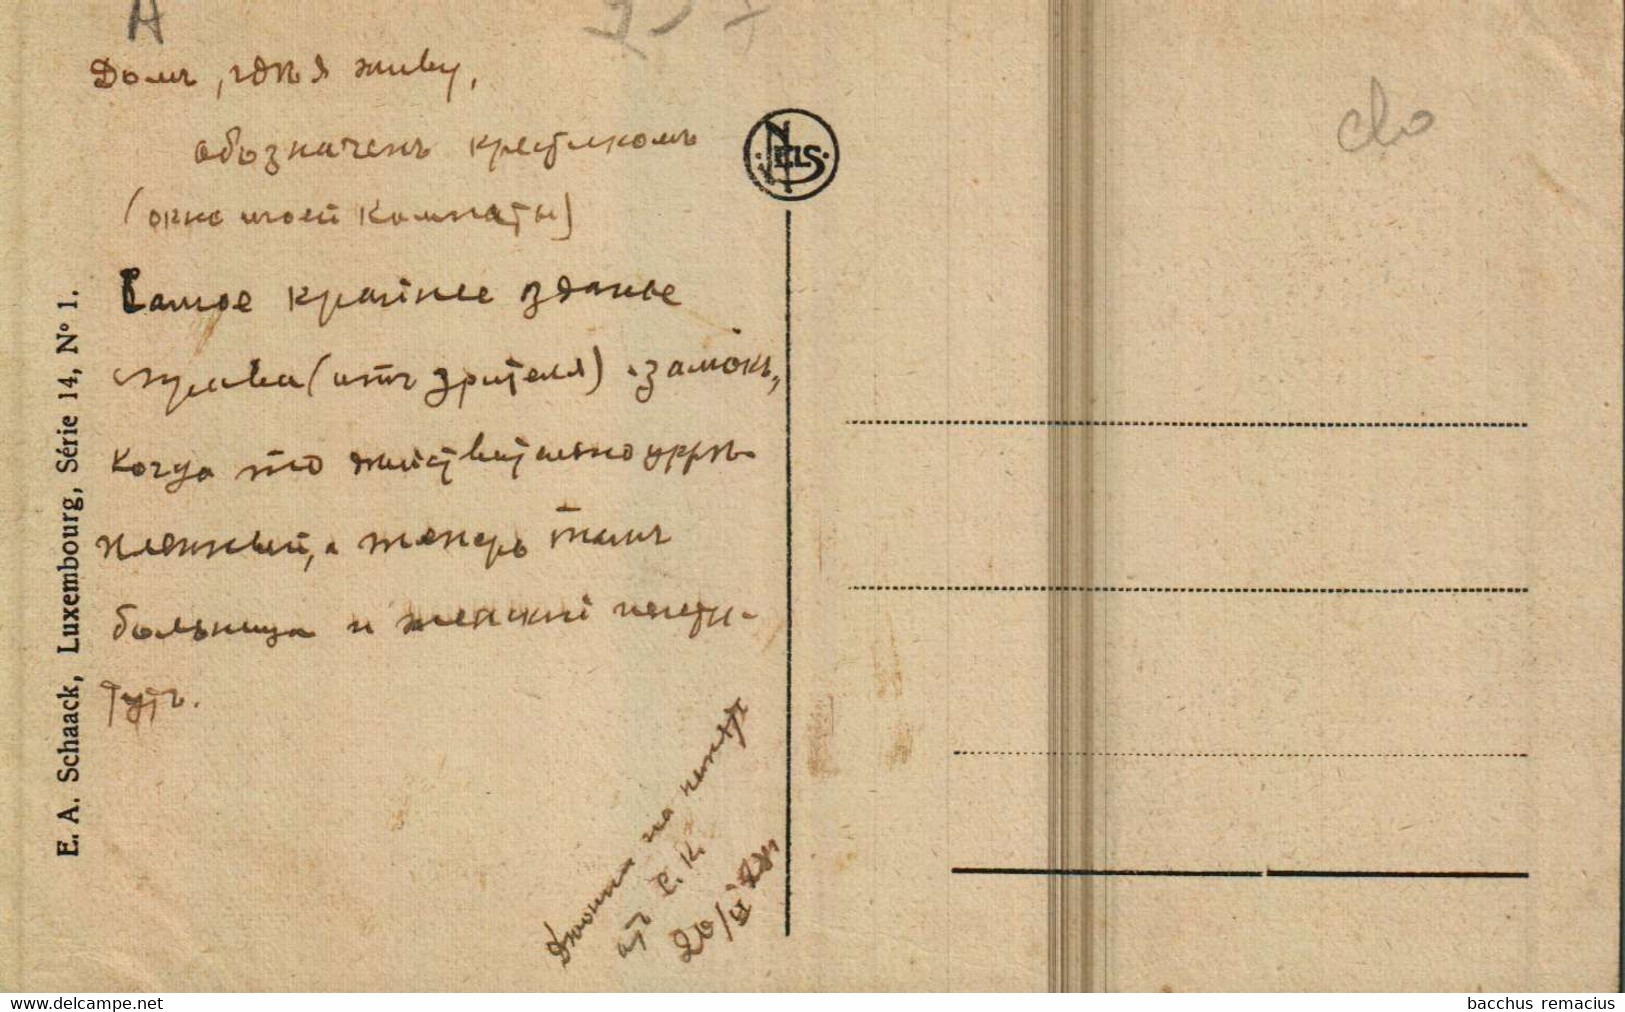 Домъ, гдѣ я живу,
обозначенъ крестикомъ
(окно моей комнаты)
Самое крайнее зданье
справа (отъ зрителя) - замокъ,
когда то действительно укрѣ-
пленный, а теперь тамъ
больница и женскій инсти-
тутъ.
на память
отъ Е. К.
20/II
E. A. Schaack, Luxembourg, Série 14, N° 1.
NELS
clo
A
bacchus remacius